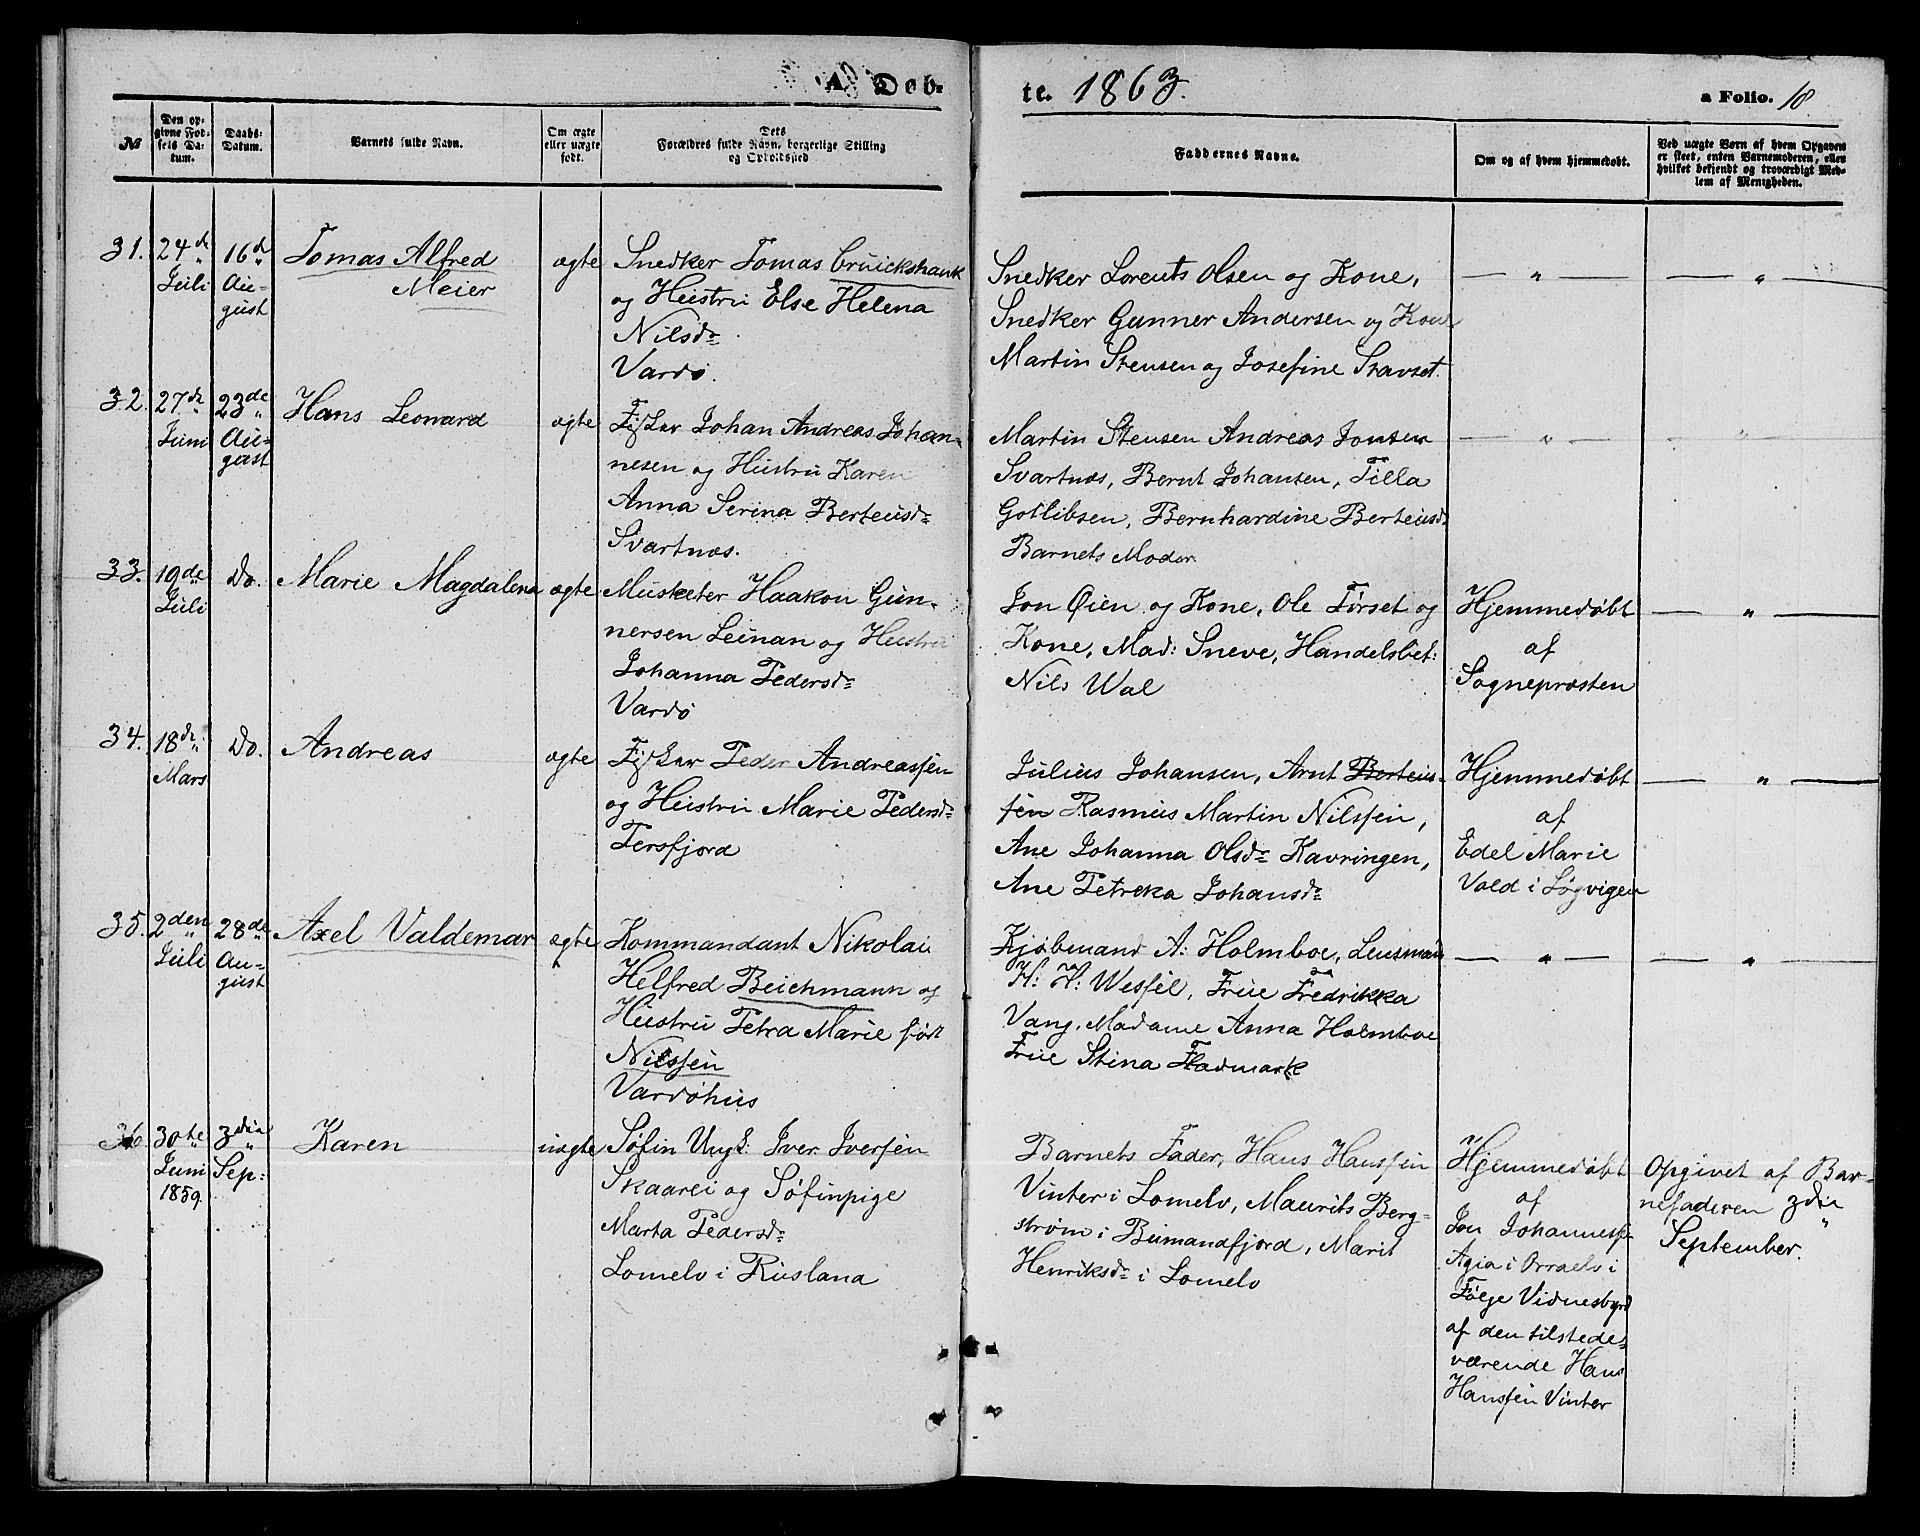 A. Døb-
te. 1863.
a Folio. 18
№
Den op-
givne Fød-
sels Da-
tum.
Daabs-
Datum.
Varnets fulde Navn.
Om ægte
eller uægte
født.
Dets
Forældres fulde Navn, borgerlige Stilling
og Opholdssted
Faddernes Navne.
Om og af hvem hjemmedøbt.
Ved uægte Børn af hvem Opgaven
er skeet, enten Barnemoderen, eller
hvilket bekjendt og troværdigt Med-
lem af Menigheden.
31.
24de
Juli
16de
Au-
gust
Tomas Alfred
Meier
ægte
Snedker Tomas Cruickshank
og Hustru Else Helena
Nilsdr
Vardø.
Snedker Lorents Olsen og Kone,
Snedker Gunner Andersen og Kone
Martin Stensen og Josefine Stavset.
— „ —
— „ —
32.
27de
Juni
23de
Au-
gust
Hans Leonard
ægte
Fisker Johan Andreas Johan-
nesen og Hustru Karen
Anna Serina Berteusdr
Svartnæs.
Martin Stensen Andreas Jonsen
Svartnæs, Bernt Johansen, Tilla
Gotlibsen, Bernhardine Berteusdr
Barnets Moder
— „ —
— „ —
33.
19de
Juli
Do.
Marie Magdalena
ægte
Musketer Haakon Gun-
nersen Leinan og Hustru
Johanna Pedersdr
Vardø
Jon Øien og Kone, Ole Førset og
Kone, Mad: Sneve, Handelsbet:
Nils Wal
Hjemmedøbt
af
Sognepræsten
— „ —
34.
18de
Mars
Do.
Andreas
ægte
Fisker Peder Andreassen
og Hustru Marie Pedersdr
Persfjord
Julius Johansen, Arnt Berteus-
sen Rasmus Martin Nilssen,
Ane Johanna Olsdr Kavringen,
Ane Petreka Johansdr
Hjemmedøbt
af
Edel Marie
Vald i Løgvigen
— „ —
35.
2den
Juli
28de
Au-
gust
Axel Valdemar
ægte
Kommandant Nikolai
Helfred Beichmann og
Hustru Petra Marie født
Nilssen
Vardøhus
Kjøbmand A: Holmboe, Lensmand
H: H: Wessel, Frue Fredrikka
Vang, Madame Anna Holmboe
Frue Stina Fladmark
— „ —
— „ —
36
30te
Juni
1859.
3die
Sep:
Karen
uægte
Søfin Ungk. Iver Iversen
Skaarei og Søfinpige
Marta Pedersdr
Lomelv i Rusland
Barnets Fader, Hans Hanssen
Vinter i Lomelv, Maurits Berg-
strøm i Bumandfjord, Marit
Henriksdr i Lomelv
Hjemmedøbt
af
Jon Johanness.
Agia i Orraelv i
Følge Vidnesbyrd
af den tilstede-
værende Hans
Hanssen Vinter
Opgivet af Bar-
nefaderen 3die
September.